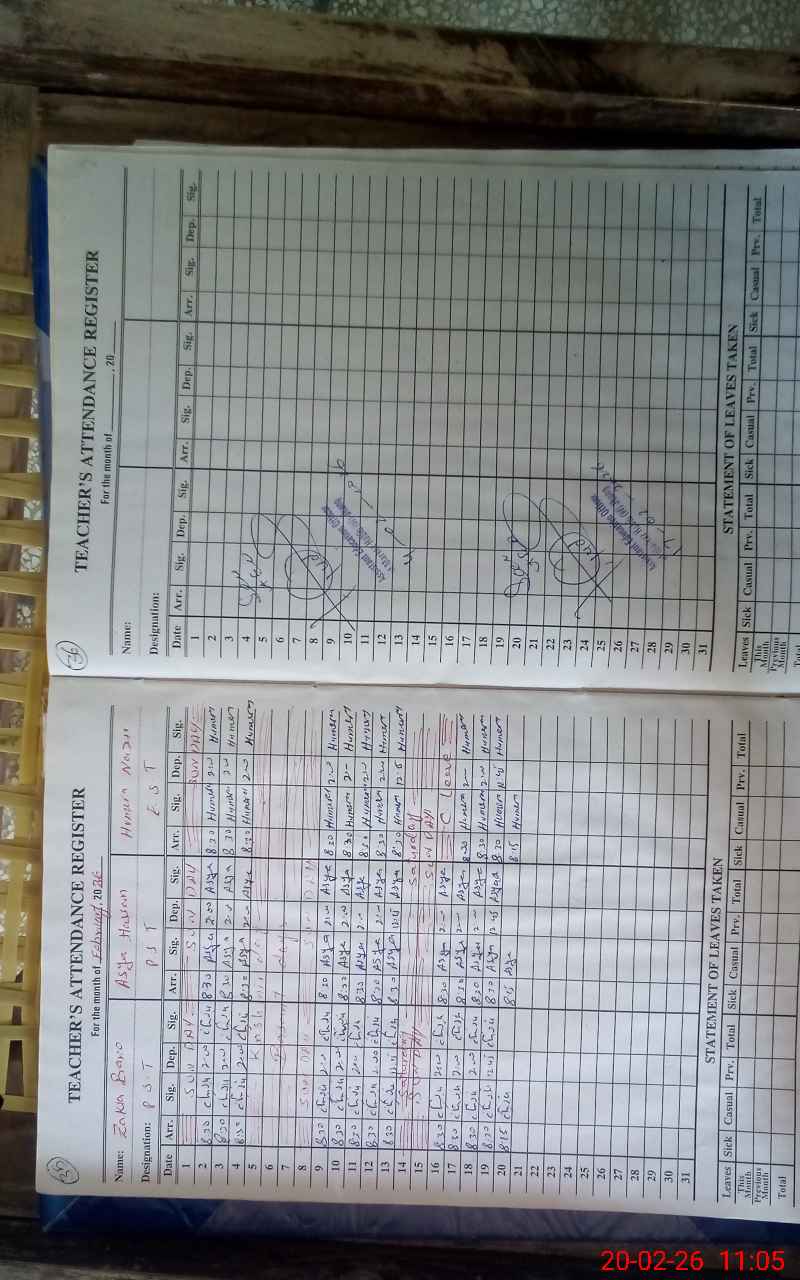 35
TEACHER'S ATTENDANCE REGISTER
For the month of February, 2026
Name: Zakia Bano Asya Hassan Humera Naizu
Designation: P S T P S T E S T
Date Arr. Sig. Dep. Sig. Arr. Sig. Dep. Sig. Arr. Sig. Dep. Sig.
1 SUN DAY SUN DAY SUN DAY
2 8:30 2:00 8:30 Asya 2:00 Asya 8:30 Humera 2:00 Humera
3 8:30 2:00 8:30 Asya 2:00 Asya 8:30 Humera 2:00 Humera
4 8:30 2:00 8:30 Asya 2:00 Asya 8:30 Humera 2:00 Humera
5 Kashmir day
6
7
8 SUN DAY SUN DAY
9 8:30 2:00 8:30 Asya 2:00 Asya 8:30 Humera 2:00 Humera
10 8:30 2:00 8:30 Asya 2:00 Asya 8:30 Humera 2:00 Humera
11 8:30 2:00 8:30 Asya 2:00 Asya 8:30 Humera 2:00 Humera
12 8:30 2:00 8:30 Asya 2:00 Asya 8:30 Humera 2:00 Humera
13 8:30 12:15 8:30 Asya 12:15 Asya 8:30 Humera 12:15 Humera
14 Saturday Saturday
15 SUN DAY SUN DAY
16 8:30 2:00 8:30 Asya 2:00 Asya C Leave
17 8:30 2:00 8:30 Asya 2:00 Asya 8:30 Humera 2:00 Humera
18 8:30 2:00 8:30 Asya 2:00 Asya 8:30 Humera 2:00 Humera
19 8:30 12:45 8:30 Asya 12:45 Asya 8:30 Humera 12:45 Humera
20 8:15 8:15 Asya 8:15 Humera
21
22
23
24
25
26
27
28
29
30
31
STATEMENT OF LEAVES TAKEN
Leaves Sick Casual Prv. Total Sick Casual Prv. Total Sick Casual Prv. Total
This Month
Previous Month
Total
36
TEACHER'S ATTENDANCE REGISTER
For the month of , 20
Name:
Designation:
Date Arr. Sig. Dep. Sig. Arr. Sig. Dep. Sig. Arr. Sig. Dep. Sig.
1
2
3
4
5
6
7
8
9
10
11
12
13
14
15
16
17
18
19
20
21
22
23
24
25
26
27
28
29
30
31
Assistant Education Officer
Assistant Education Officer
STATEMENT OF LEAVES TAKEN
Leaves Sick Casual Prv. Total Sick Casual Prv. Total Sick Casual Prv. Total
This Month
Previous Month
Total
20-02-26 11:05